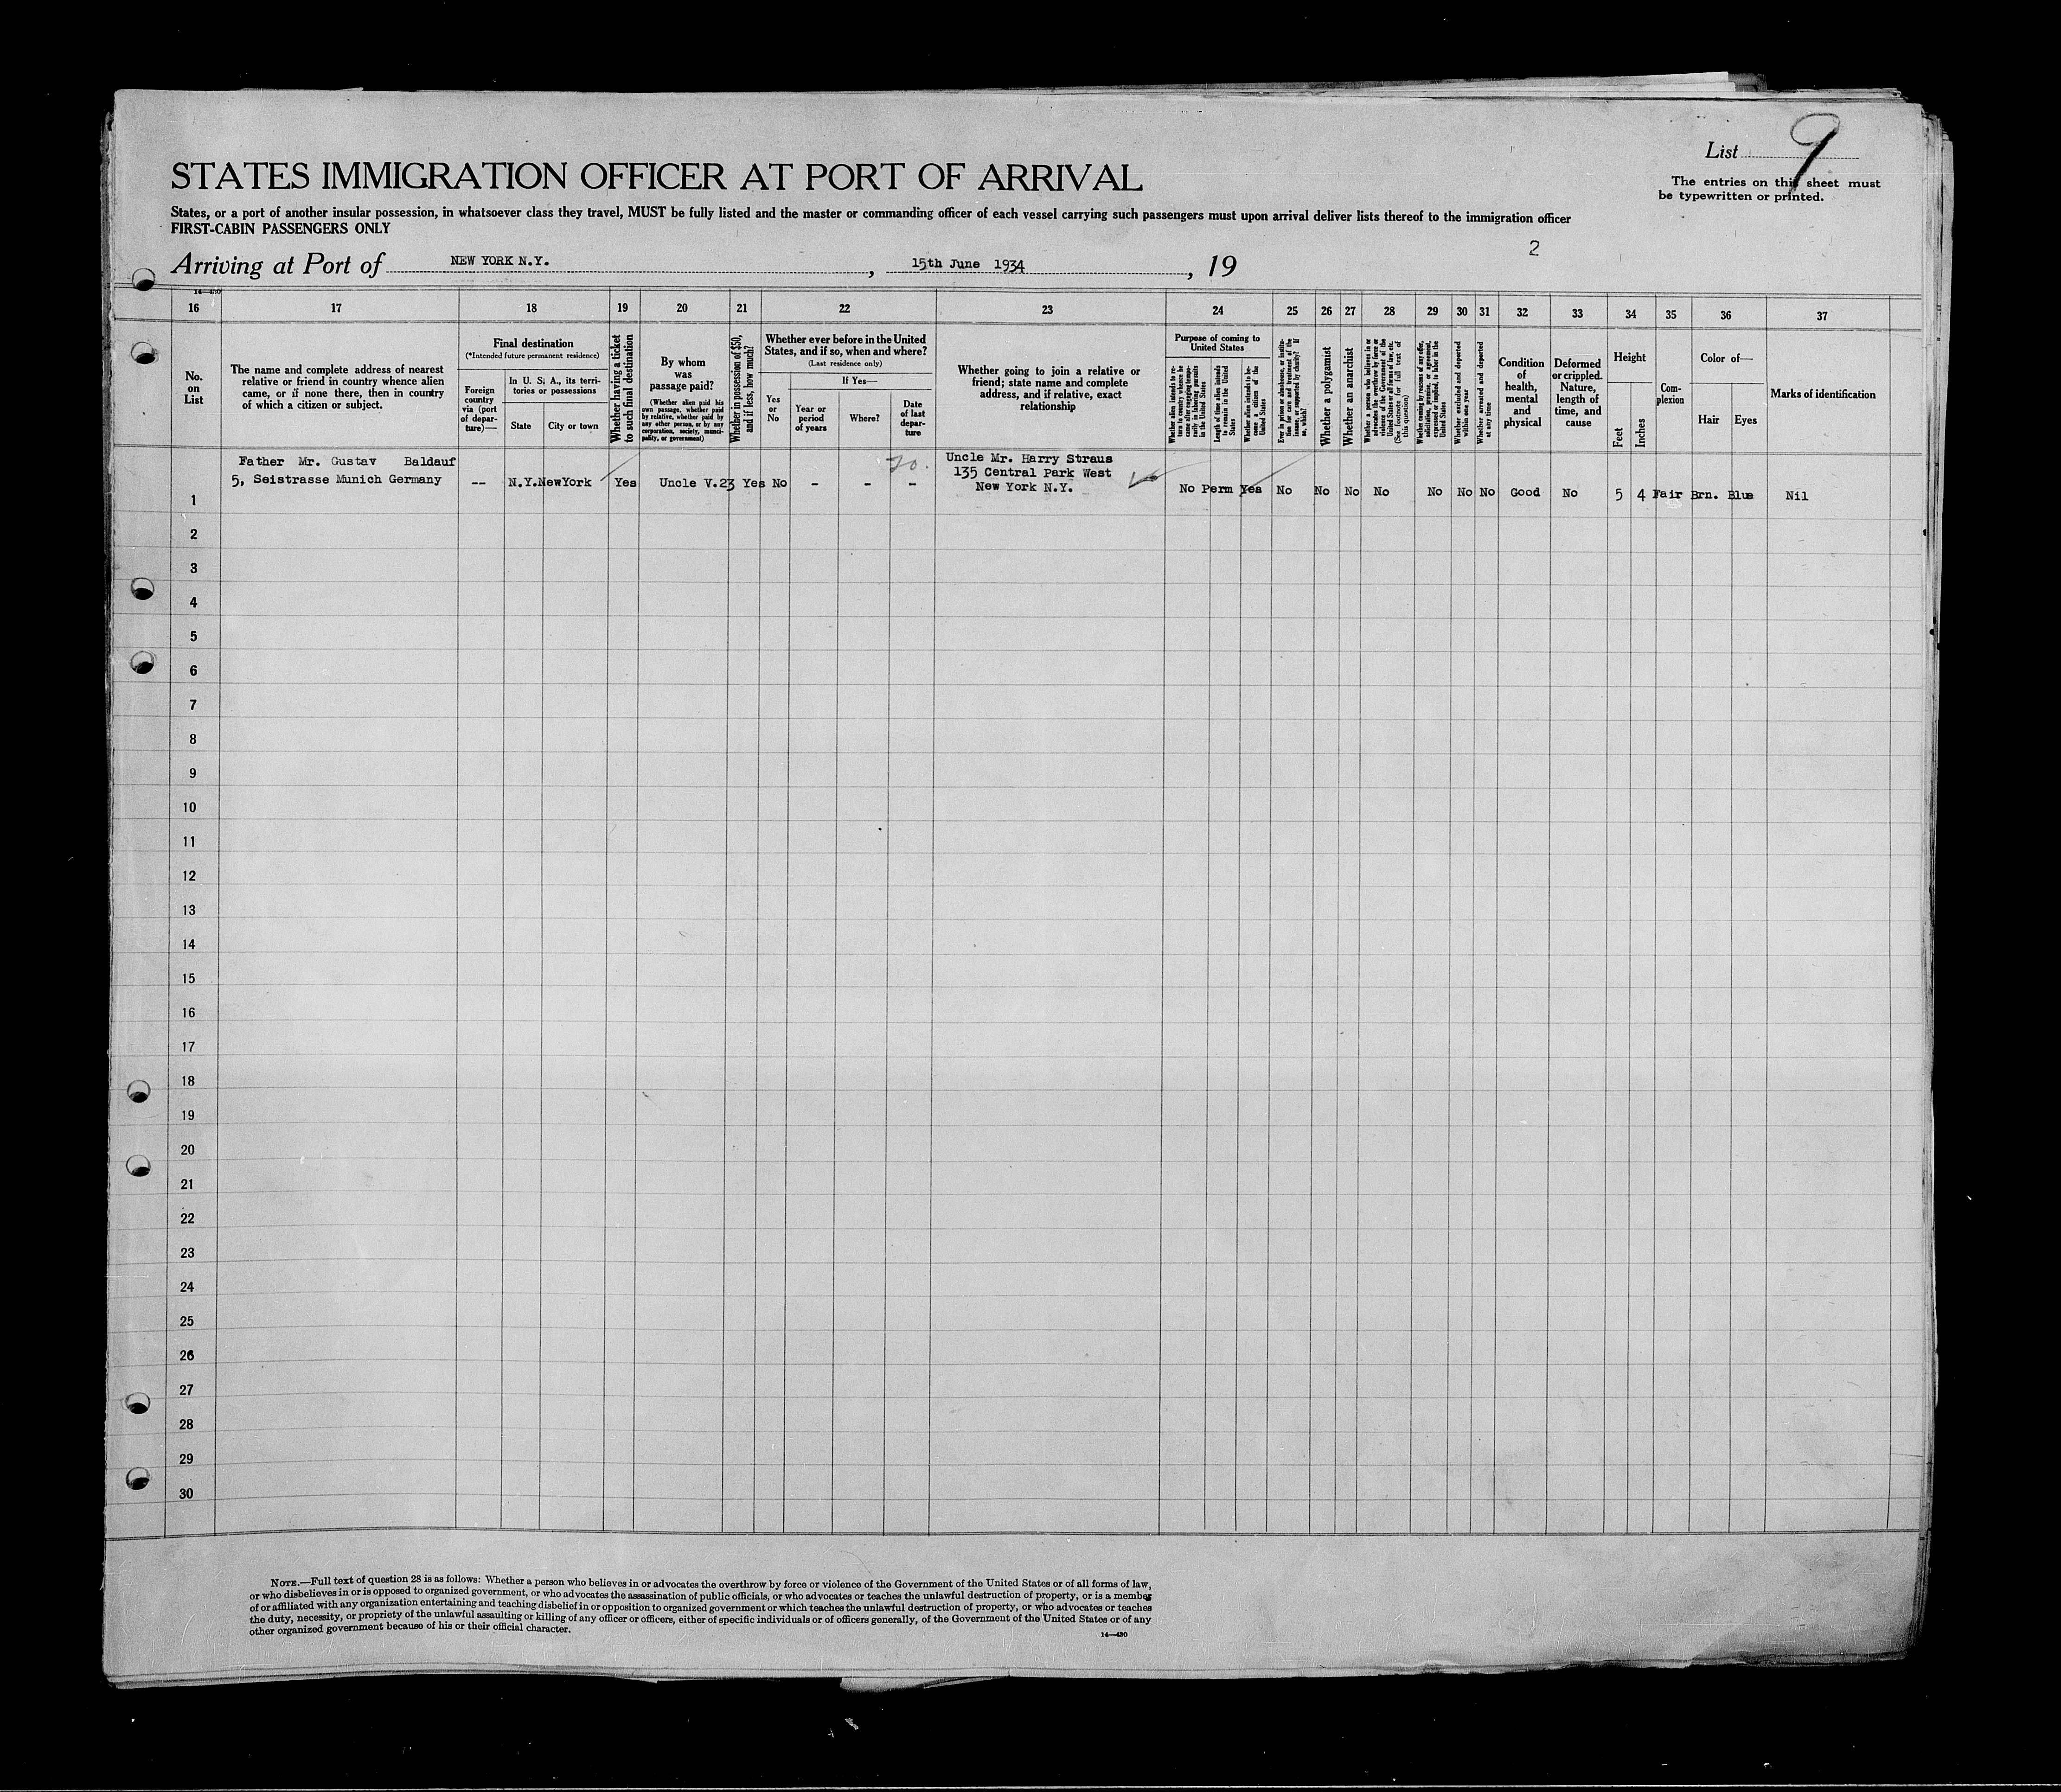 List 9
The entries on this sheet must
be typewritten or printed.
STATES IMMIGRATION OFFICER AT PORT OF ARRIVAL
States, or a port of another insular possession, in whatsoever class they travel, MUST be fully listed and the master or commanding officer of each vessel carrying such passengers must upon arrival deliver lists thereof to the immigration officer
FIRST-CABIN PASSENGERS ONLY
2
Arriving at Port of NEW YORK N.Y. , 15th June 1934 , 19
14—430
16 17 18 19 20 21 22 23 24 25 26 27 28 29 30 31 32 33 34 35 36 37
No.
on
List
The name and complete address of nearest
relative or friend in country whence alien
came, or if none there, then in country
of which a citizen or subject.
Final destination
(*Intended future permanent residence)
Foreign
country
via (port
of depar-
ture)—
In U. S. A., its terri-
tories or possessions
State
City or town
Whether having a ticket
to such final destination
By whom
was
passage paid?
(Whether alien paid his
own passage, whether paid
by relative, whether paid by
any other person, or by any
corporation, society, munici-
pality, or government)
Whether in possession of $50,
and if less, how much?
Whether ever before in the United
States, and if so, when and where?
(Last residence only)
Yes
or
No
If Yes—
Year or
period
of years
Where?
Date
of last
depar-
ture
Whether going to join a relative or
friend; state name and complete
address, and if relative, exact
relationship
Purpose of coming to
United States
Whether alien intends to re-
turn to country whence he
came after engaging tempo-
rarily in laboring pursuits
in the United States
Length of time alien intends
to remain in the United
States
Whether alien intends to be-
come a citizen of the
United States
Ever in prison or almshouse, or institu-
tion for care and treatment of the
insane, or supported by charity? If
so, which?
Whether a polygamist
Whether an anarchist
Whether a person who believes in or
advocates the overthrow by force or
violence of the Government of the
United States or all forms of law, etc.
(See footnote for full text of
this question)
Whether coming by reasons of any offer,
solicitation, promise, or agreement,
expressed or implied, to labor in the
United States
Whether excluded and deported
within one year
Whether arrested and deported
at any time
Condition
of
health,
mental
and
physical
Deformed
or crippled.
Nature,
length of
time, and
cause
Height
Feet
Inches
Com-
plexion
Color of—
Hair
Eyes
Marks of identification
Father Mr. Gustav Baldauf
5, Seistrasse Munich Germany
-- N.Y. NewYork Yes Uncle V.23 Yes No - - -
Uncle Mr. Harry Straus
135 Central Park West
New York N.Y.
No Perm Yes No No No No No No No Good No 5 4 Fair Brn. Blue Nil
1
2
3
4
5
6
7
8
9
10
11
12
13
14
15
16
17
18
19
20
21
22
23
24
25
26
27
28
29
30
NOTE.—Full text of question 28 is as follows: Whether a person who believes in or advocates the overthrow by force or violence of the Government of the United States or of all forms of law,
or who disbelieves in or is opposed to organized government, or who advocates the assassination of public officials, or who advocates or teaches the unlawful destruction of property, or is a member
of or affiliated with any organization entertaining and teaching disbelief in or opposition to organized government or which teaches the unlawful destruction of property, or who advocates or teaches
the duty, necessity, or propriety of the unlawful assaulting or killing of any officer or officers, either of specific individuals or of officers generally, of the Government of the United States or of any
other organized government because of his or their official character.
14—430